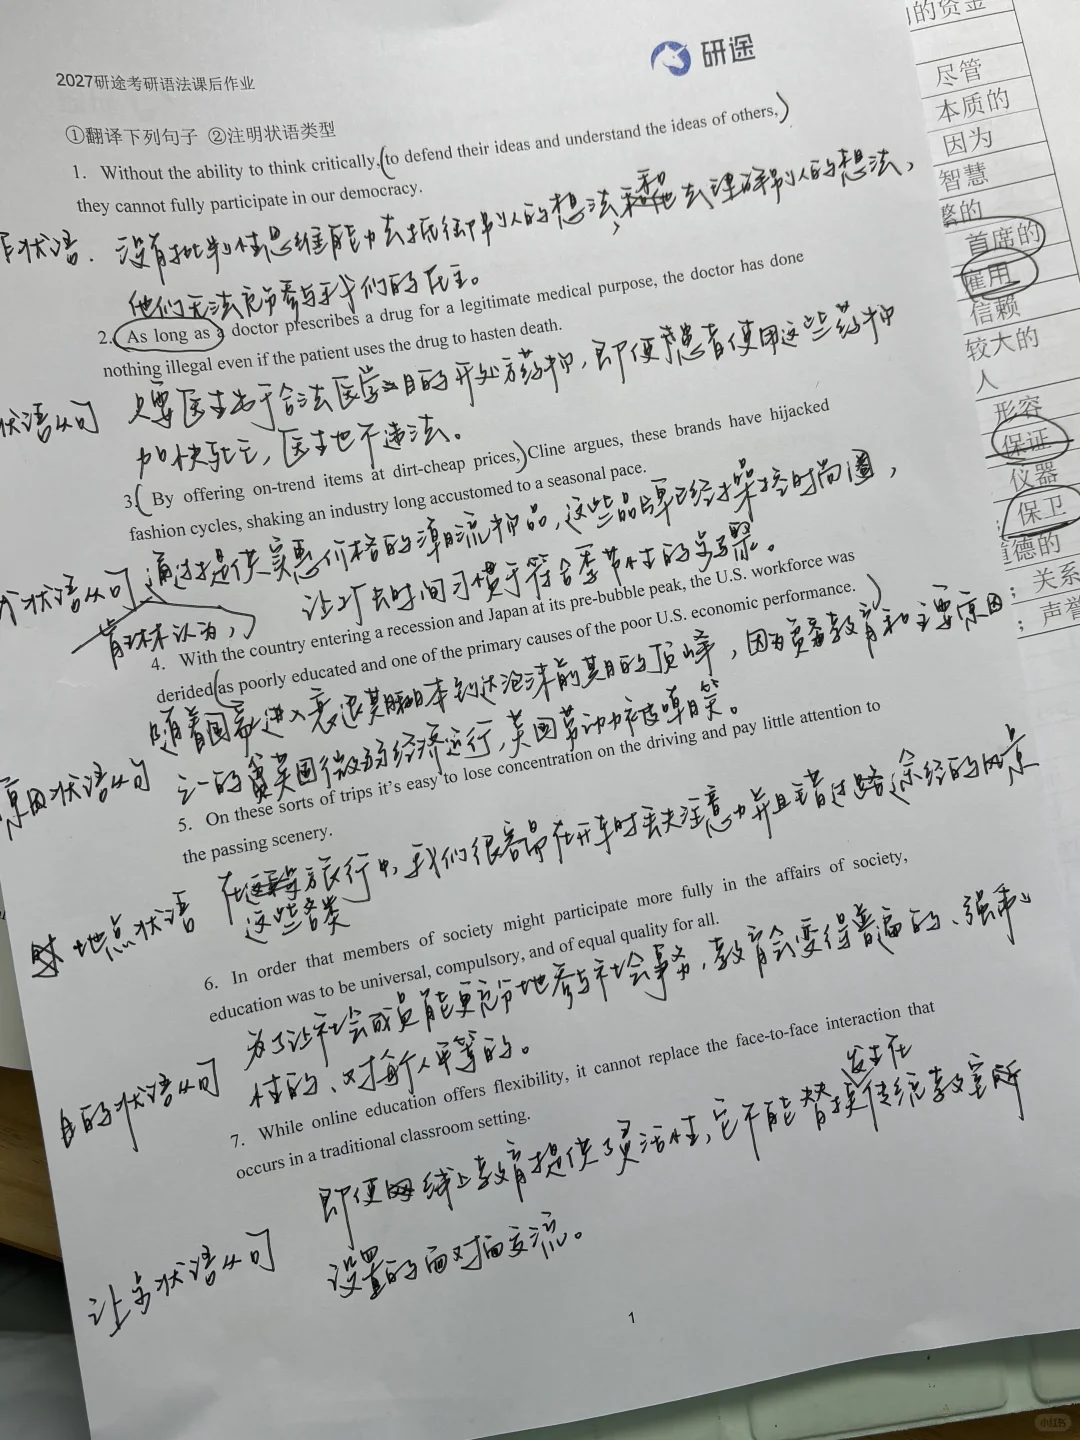 研途
2027研途考研语法课后作业
①翻译下列句子 ②注明状语类型
1. Without the ability to think critically, to defend their ideas and understand the ideas of others,
they cannot fully participate in our democracy.
状语. 没有批判性思维能力去抵御别人的想法,和去理解别人的想法,
他们无法充分参与我们的民主。
2. As long as a doctor prescribes a drug for a legitimate medical purpose, the doctor has done
nothing illegal even if the patient uses the drug to hasten death.
状语从句 只要医生出于合法医学目的开处方药物, 即便患者使用这些药物
加快死亡, 医生也不违法。
3. By offering on-trend items at dirt-cheap prices, Cline argues, these brands have hijacked
fashion cycles, shaking an industry long accustomed to a seasonal pace.
状语从句 通过提供实惠价格的潮流物品, 这些品牌已经操控时尚圈,
认为, 让时间习惯于符合季节性的步骤。
4. With the country entering a recession and Japan at its pre-bubble peak, the U.S. workforce was
derided as poorly educated and one of the primary causes of the poor U.S. economic performance.
随着国家进入衰退期和日本到达泡沫前期的顶峰, 因为贫穷教育和主要原因
原因状语从句 之一的美国微弱经济运行, 美国劳动力被嘲笑。
5. On these sorts of trips it's easy to lose concentration on the driving and pay little attention to
the passing scenery.
地点状语 在旅行中, 我们很容易在开车时丢失注意力并且错过路途经的风景
这些各类
6. In order that members of society might participate more fully in the affairs of society,
education was to be universal, compulsory, and of equal quality for all.
为了让社会成员能更充分地参与社会事务, 教育会变得普遍的、强制
目的状语从句 性的、对每个人平等的。
7. While online education offers flexibility, it cannot replace the face-to-face interaction that
occurs in a traditional classroom setting.
发生在
即便线上教育提供了灵活性, 它不能替换传统教室所
让步状语从句 设置的面对面交流。
1
的资金
尽管
本质的
因为
智慧
的
首席的
雇用
信赖
较大的
人
形容
保证
仪器
保卫
道德的
; 关系
; 声誉
小红书